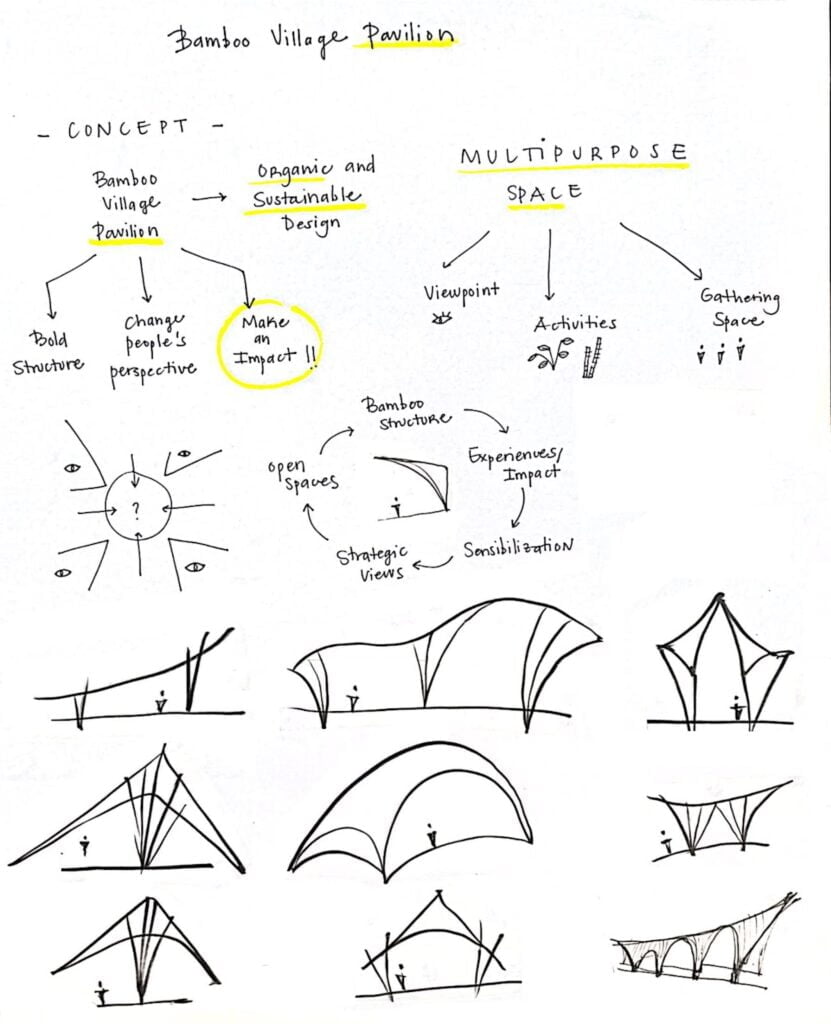 Bamboo Village Pavilion
- CONCEPT -
Bamboo
Village
Pavilion
Organic and
Sustainable
Design
Bold
Structure
Change
people's
perspective
Make
an
Impact !!
MULTIPURPOSE
SPACE
Viewpoint
Activities
Gathering
Space
?
Bamboo
Structure
Experiences/
Impact
Sensibilization
Strategic
Views
Open
Spaces